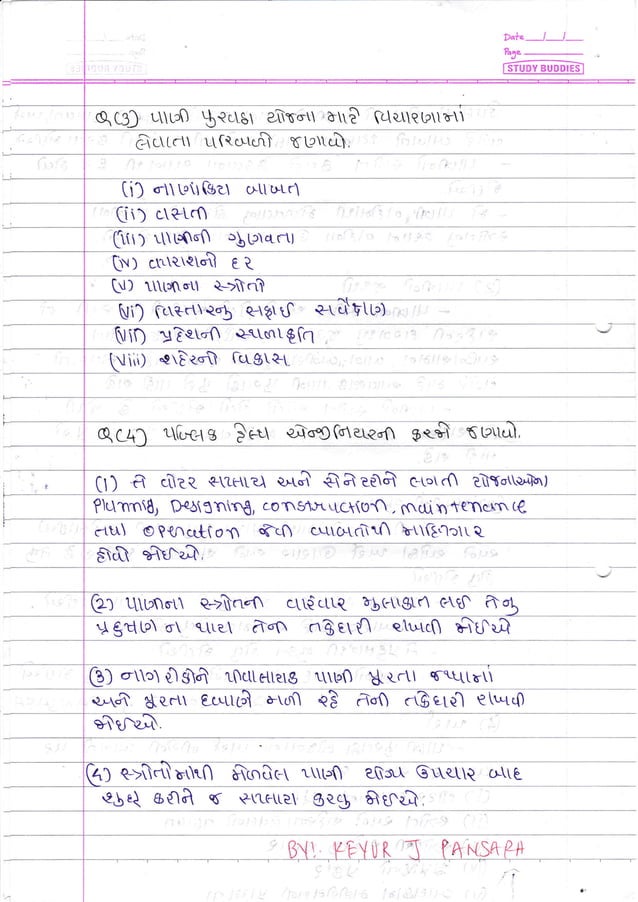 Date __/__/__
Page
STUDY BUDDIES
Q(3) પાણી પુરવઠા યોજના માટે વિચારણામાં
લેવાતા પરિબળો જણાવો.
(i) નાણાકિય બાબત
(ii) વસતી
(iii) પાણીની ગુણવતા
(iv) વપરાશનો દર
(v) પાણીના સ્ત્રોતો
(vi) વિસ્તારનું સફાઈ સર્વેક્ષણ
(vii) પ્રદેશની સ્થળાકૃતિ
(viii) શહેરનો વિકાસ
Q(4) પબ્લિક હેલ્થ એન્જીનિયરની ફરજો જણાવો.
(1) તે વોટર સપ્લાય અને સેનેટરીને લગતી યોજનાઓના
Planning, Designing, construction, maintenance
તથા operation જેવી બાબતોથી માહિતગાર
હોવો જોઈએ.
(2) પાણીના સ્ત્રોતની વારંવાર મુલાકાત લઈ તેનુ
પ્રદુષણ ન થાય તેની તકેદારી રાખવી જોઈએ
(3) નાગરીકોને પીવાલાયક પાણી પુરતા જથ્થામાં
અને પુરતા દબાણે મળી રહે તેની તકેદારી રાખવી
જોઈએ.
(4) સ્ત્રોતોમાથી મેળવેલ પાણી યોગ્ય ઉપચાર બાદ
શુધ્ધ કરીને જ સપ્લાય કરવુ જોઈએ.
BY:- KEYUR J PANSARA